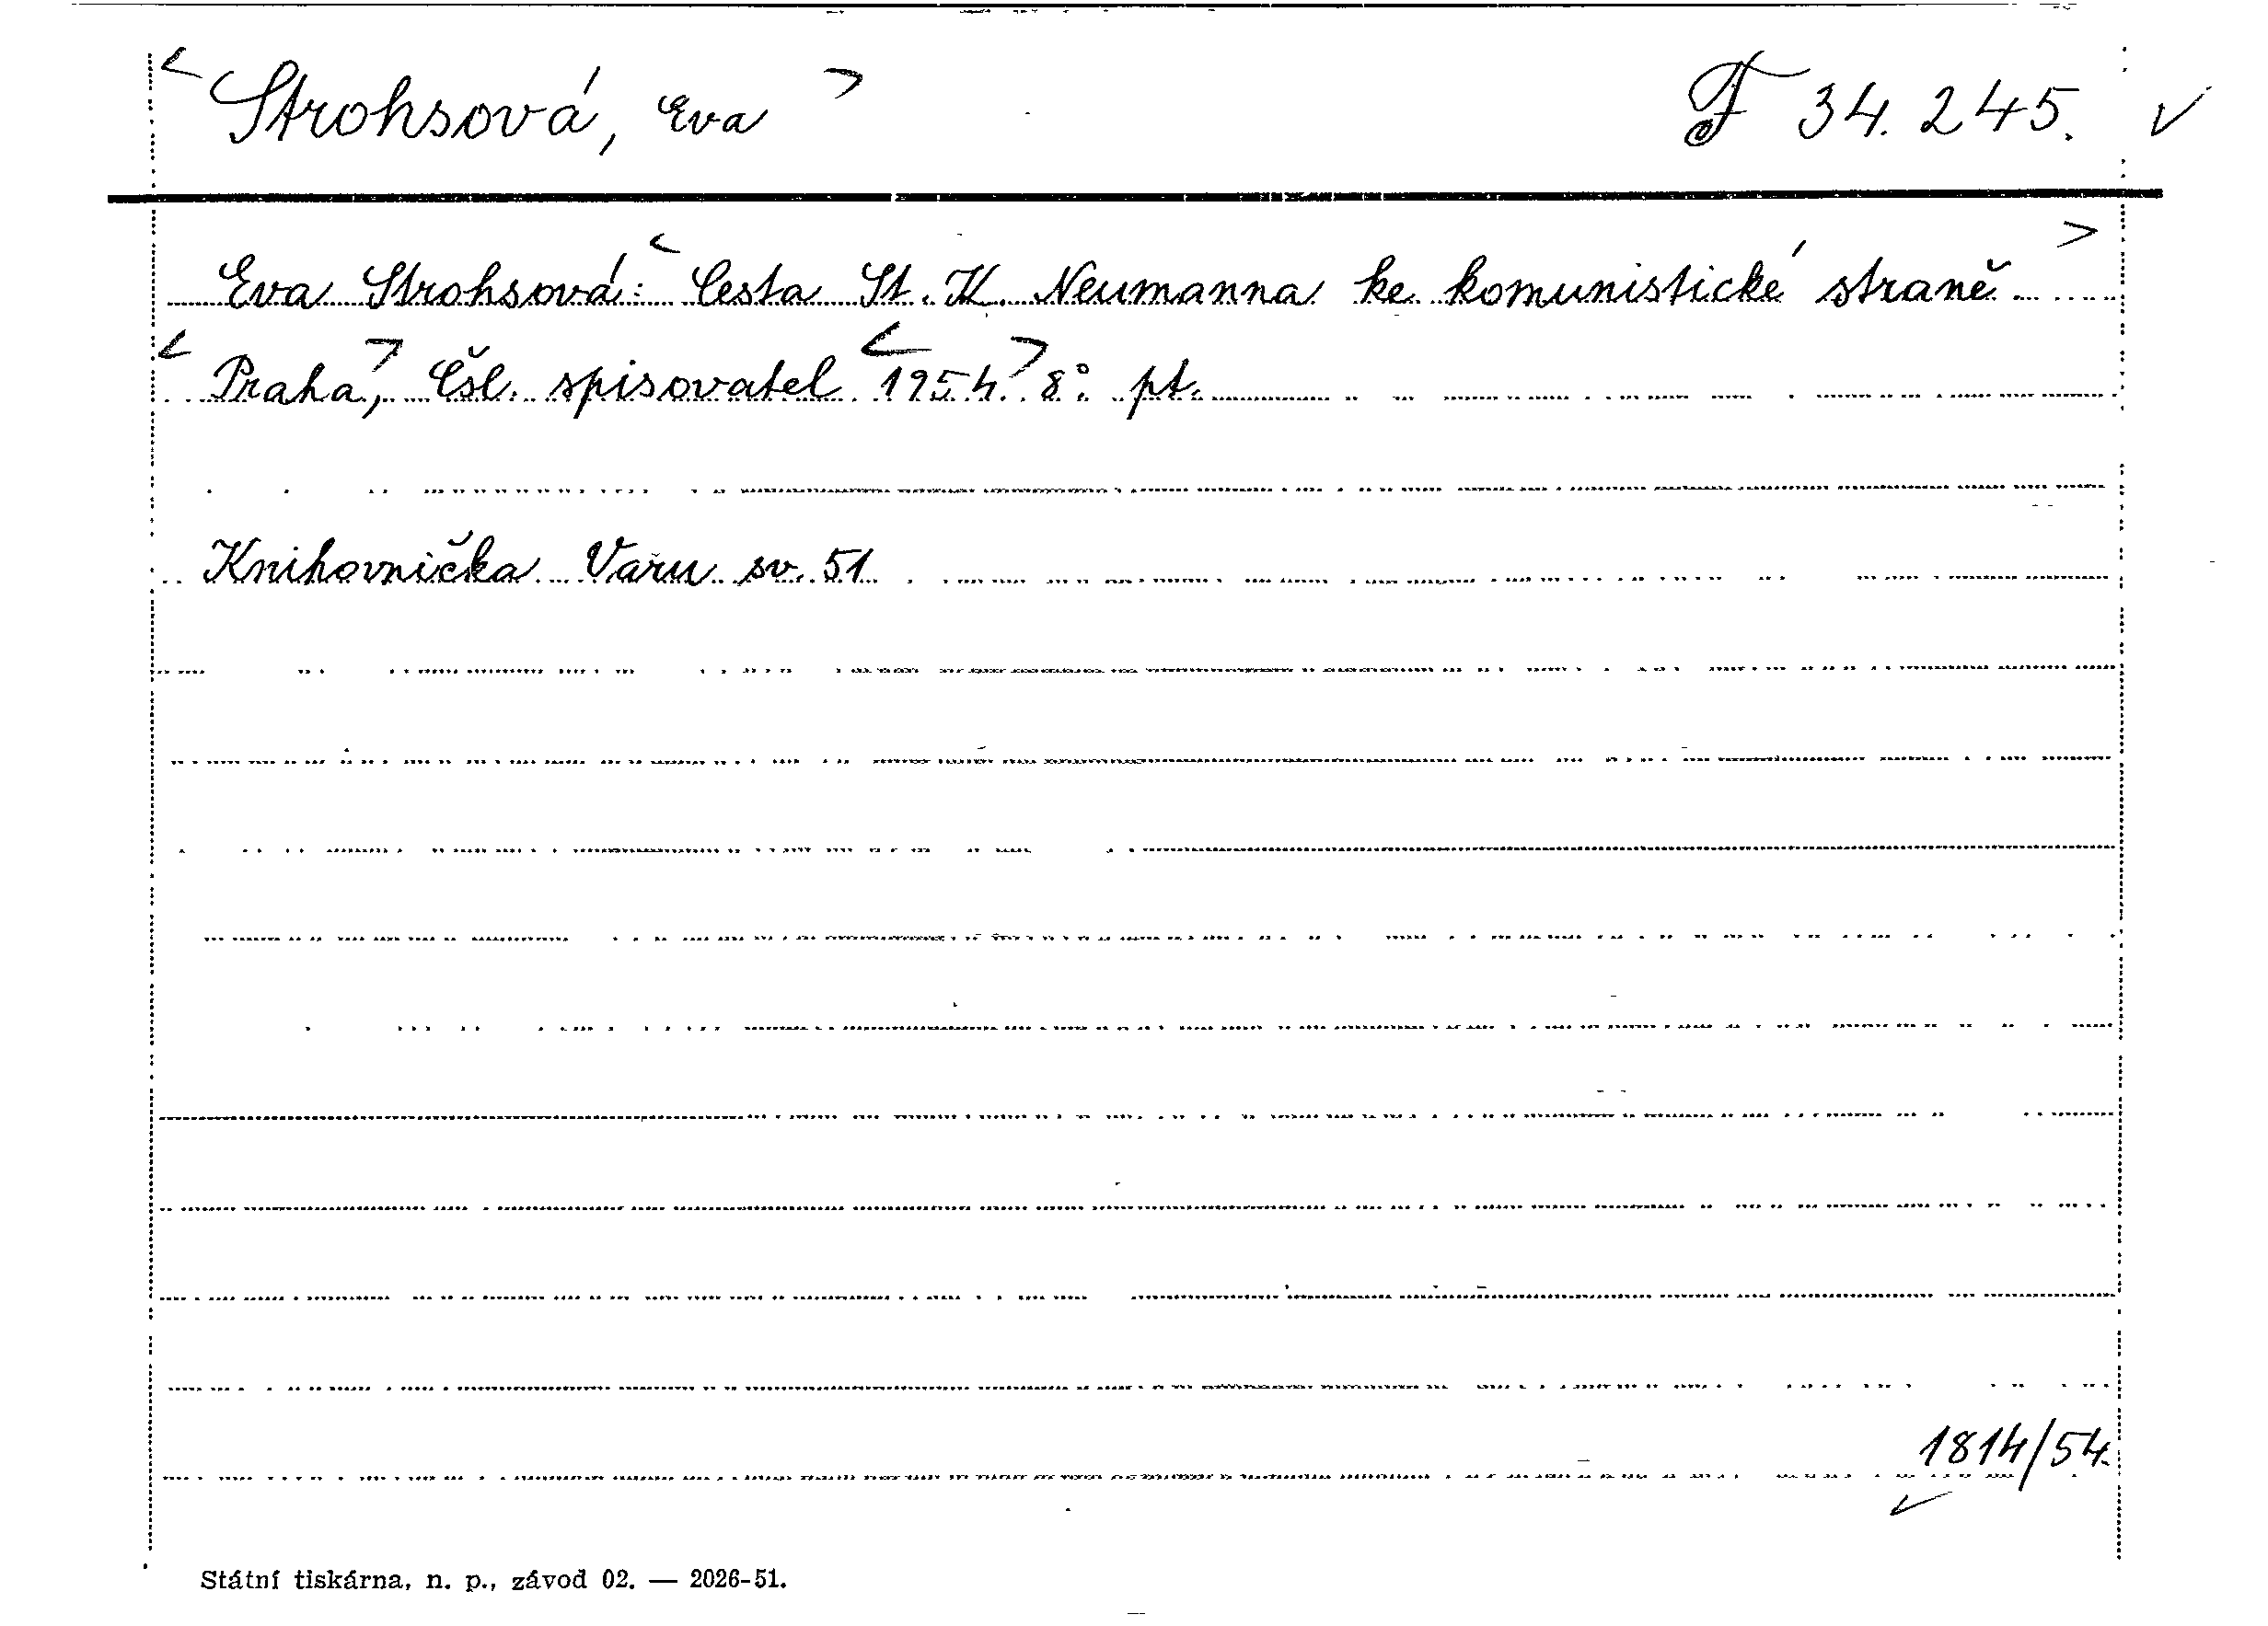 <Strohsová, Eva> F 34.245. ✓
Eva Strohsová: <Cesta St. K. Neumanna ke komunistické straně>
<Praha>, Čsl. spisovatel <1954.> 8° pt.
Knihovnička Varu sv. 51
1814/54.
✓
Státní tiskárna, n. p., závod 02. — 2026-51.